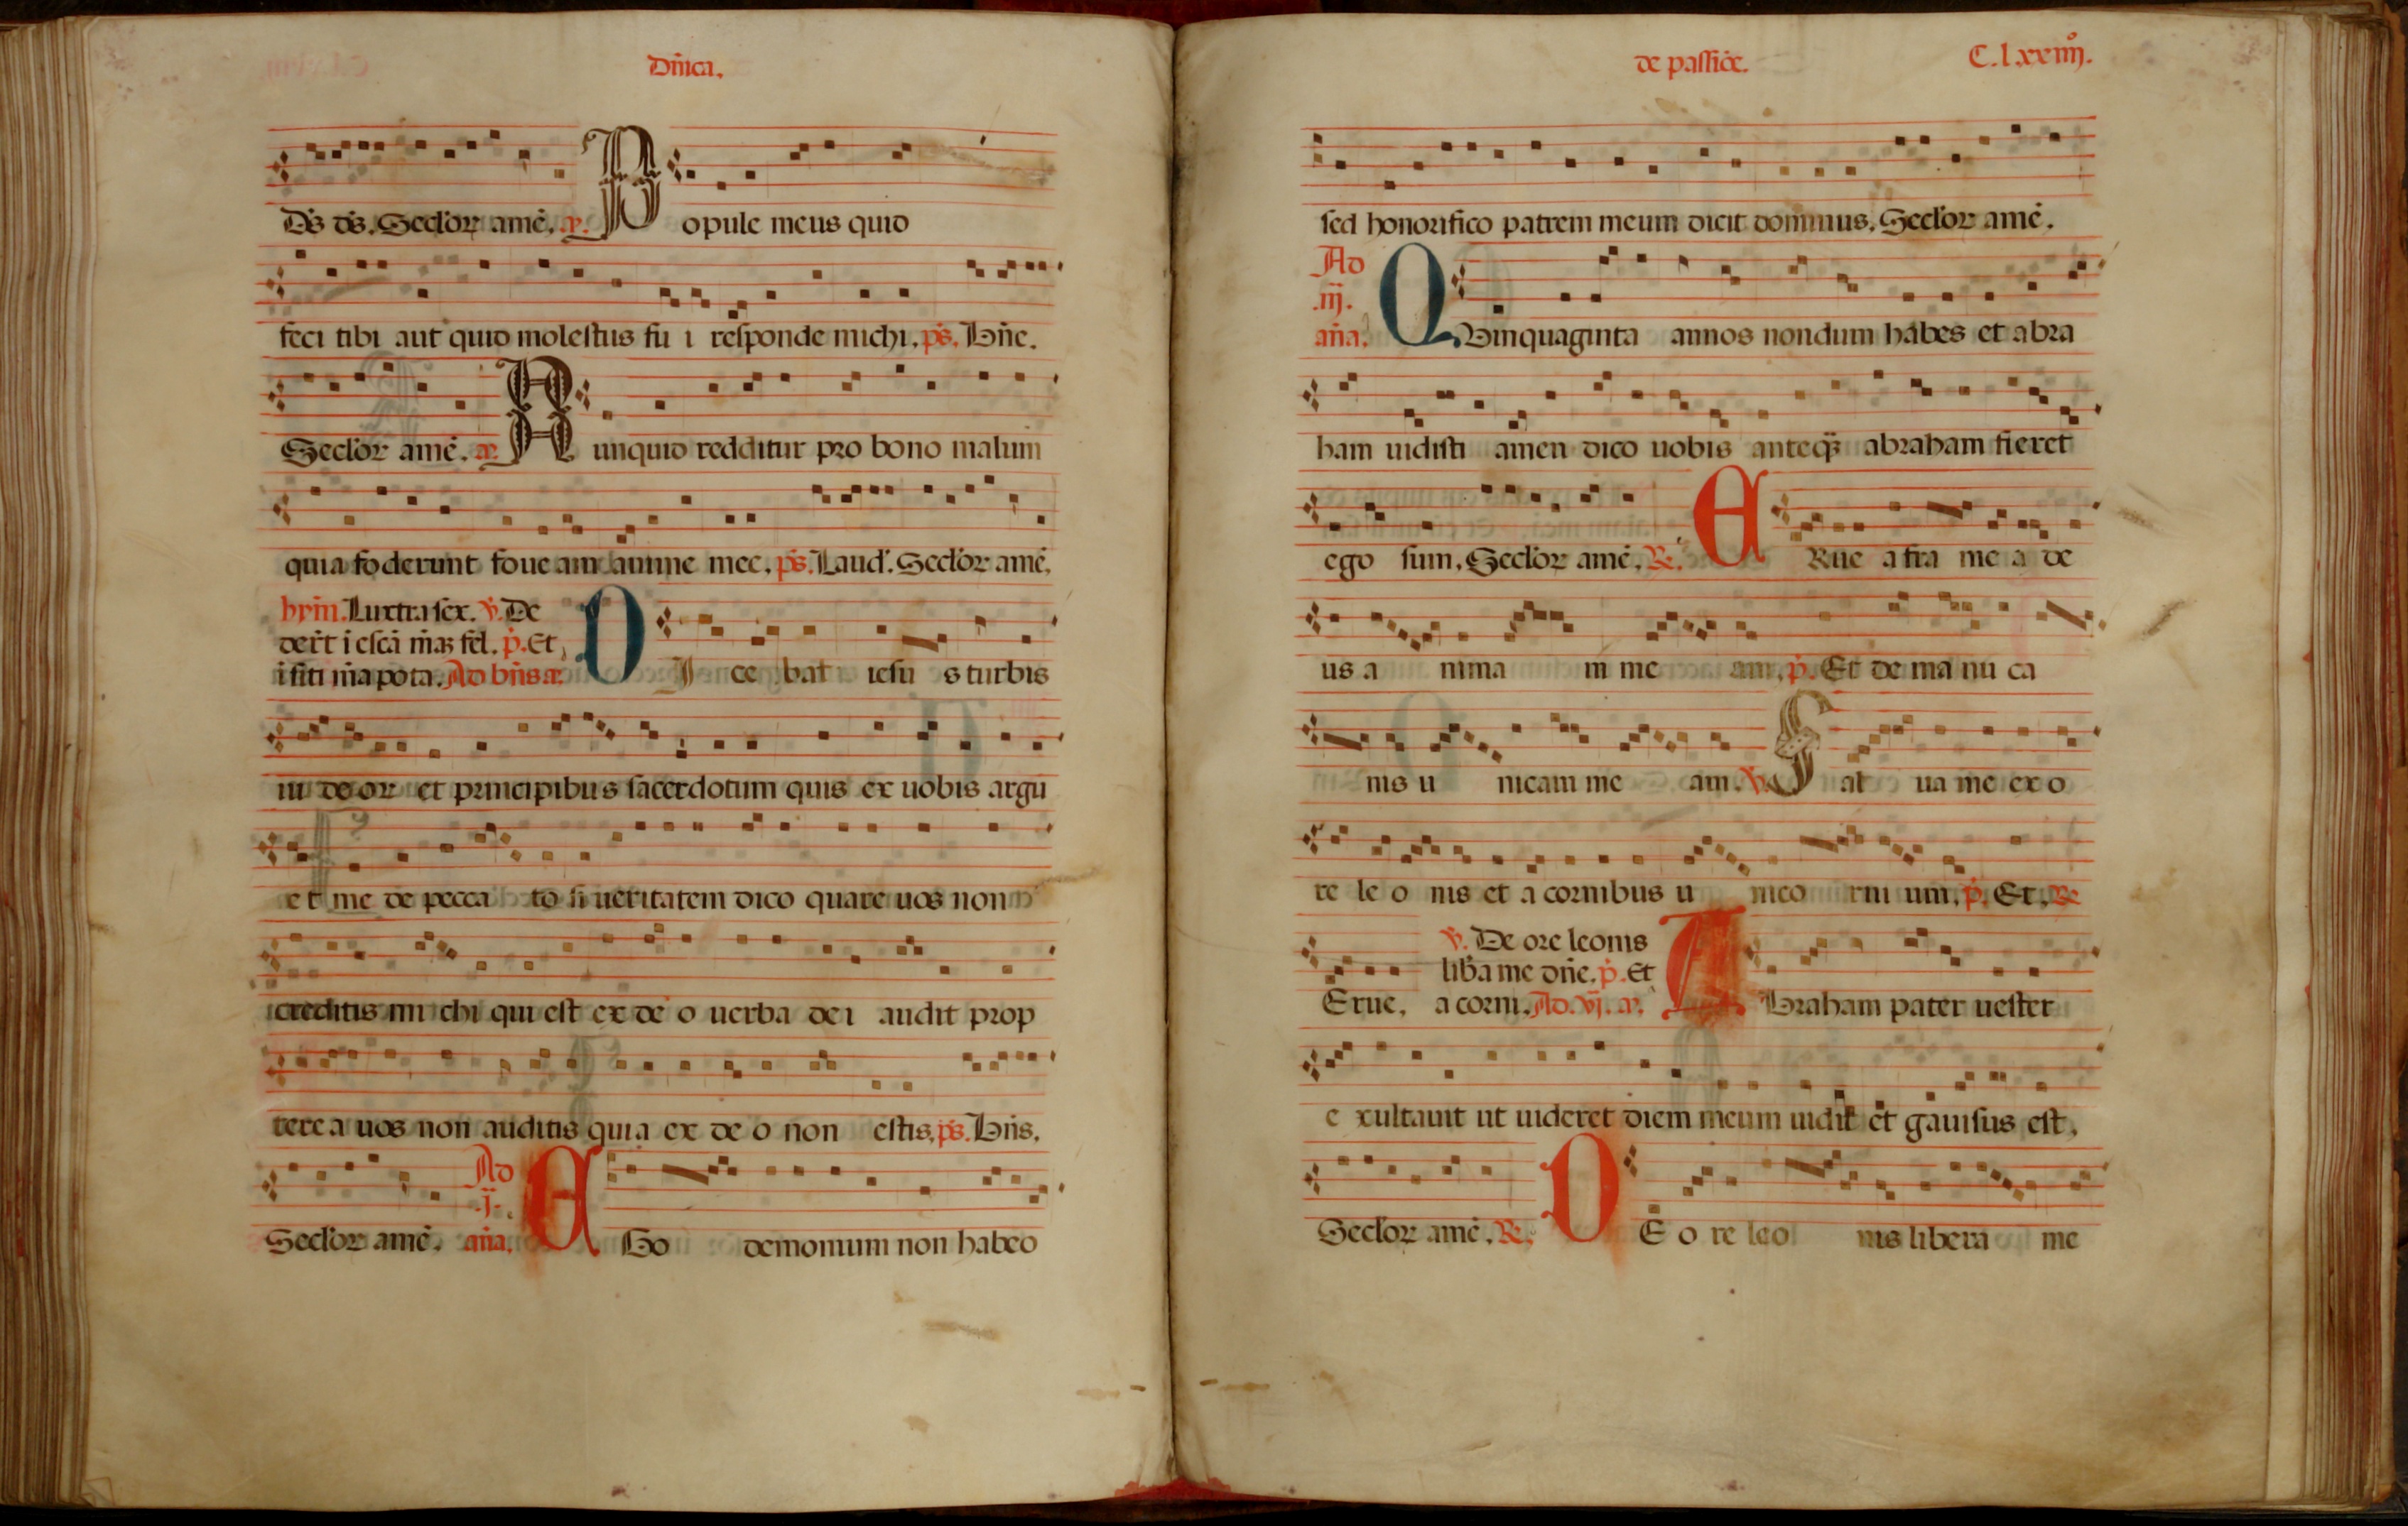 Dñica.
Ds̄ ds̄. Seclor amē. a᷒. P opule meus quid
feci tibi aut quid molestus fu i responde michi. ps̄. Bñe.
Seclor amē. a᷒. N unquid redditur pro bono malum
quia foderunt foue am anime mee. ps̄. Laud. Seclor amē.
hym̄. Luxtra sex. v̄. De
der̄t i escā m̄aꝫ fel. p̄. Et
i siti m̄a pota. Ad bn̄s a᷒. D I ce bat iesu s turbis
iu de or et principibus sacerdotum quis ex uobis argu
et me de pecca to si ueritatem dico quare uos non
creditis mi chi qui est ex de o uerba de i audit prop
tere a uos non auditis quia ex de o non estis. ps̄. Bn̄s.
Seclor amē. Ad .j. añа. E Go demonium non habeo
de passiōe. C.lxxiiijº.
sed honorifico patrem meum dicit dominus. Seclor amē.
Ad .iij. añа. Q Uinquaginta annos nondum habes et abra
ham uidisti amen dico uobis anteqȝ abraham fieret
ego sum. Seclor amē. R̄. E Rue a fra me a de
us a nima m me am. p̄. Et de ma nu ca
nis u nicam me am. v̄. S al ua me ex o
re le o nis et a cornibus u nico rni um. p̄. Et. R̄
v̄. De ore leonis
lib̄a me dn̄e. p̄. Et
Erue. a corni. Ad .vj. a᷒. A Braham pater uester
e xultauit ut uideret diem meum uidit et gauisus est.
Seclor amē. R̄. D E o re leo nis libera me